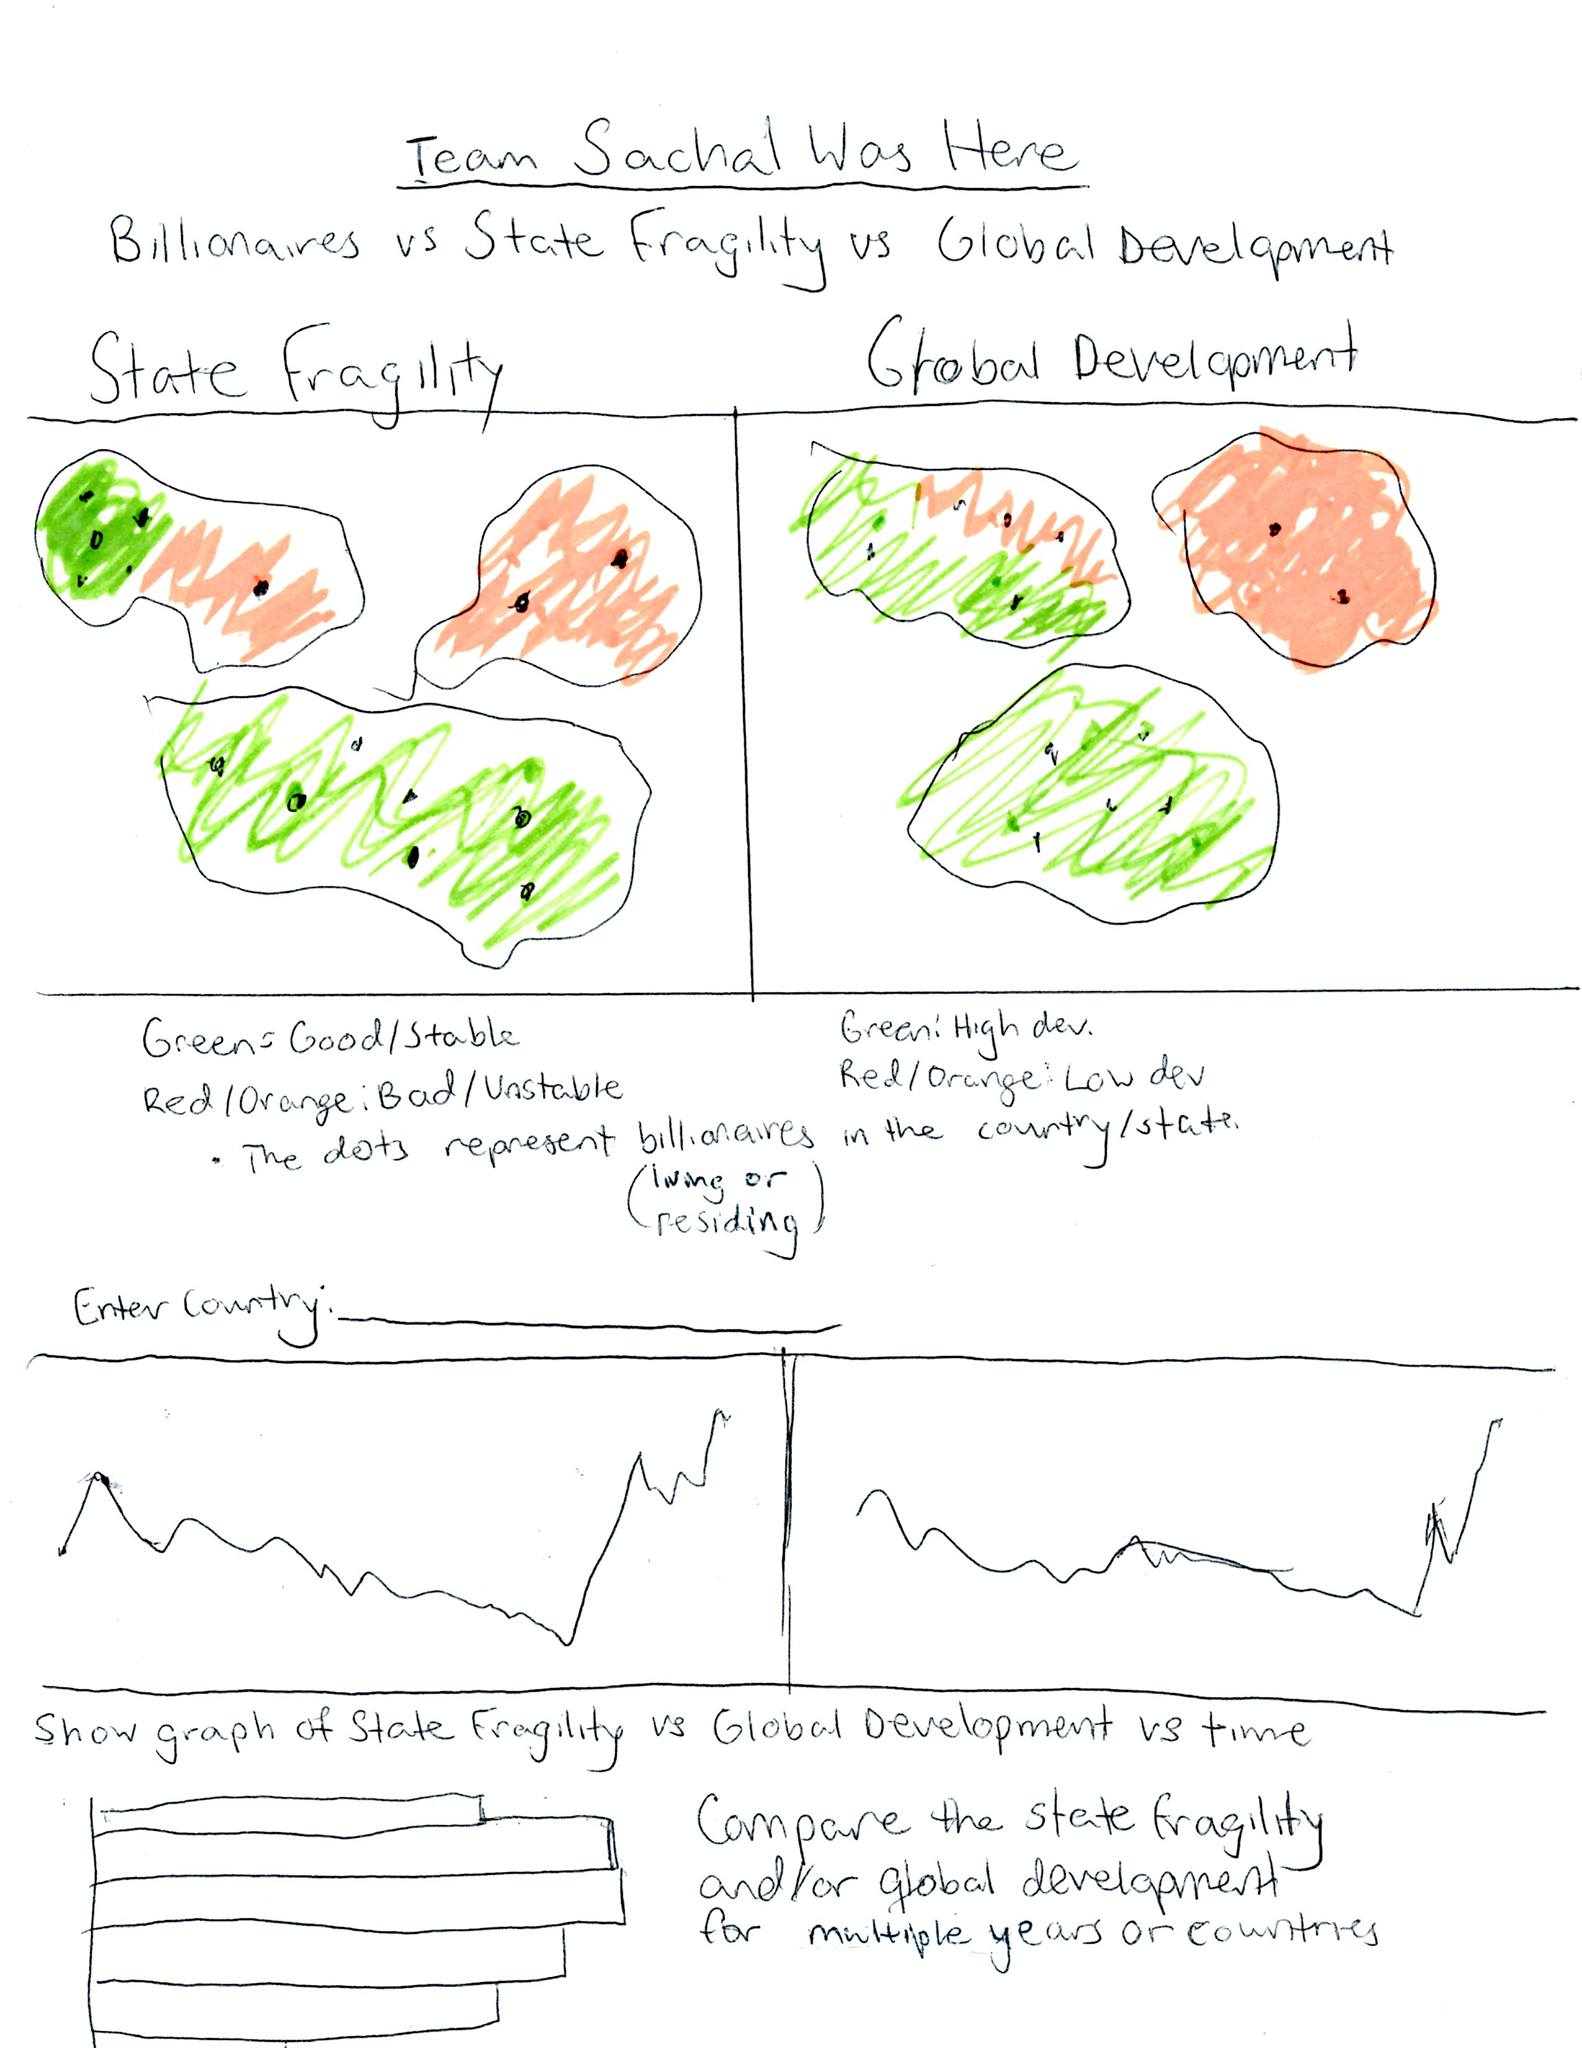 Team Sachal Was Here
Billionaires vs State Fragility vs Global Development
State Fragility
Global Development
Green: Good/Stable
Red/Orange: Bad/Unstable
Green: High dev.
Red/Orange: Low dev
• The dots represent billionaires in the country/state.
(living or
residing)
Enter Country:
Show graph of State Fragility vs Global Development vs time
Compare the state fragility
and/or global development
for multiple years or countries